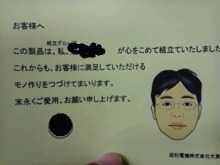 お客様へ
組立グループ
この製品は、私、 が心をこめて組立ていたしました
これからも、お客様に満足していただける
モノ作りをつづけてまいります。
末永くご愛用、お願い申し上げます。
昭和電機株式会社大東